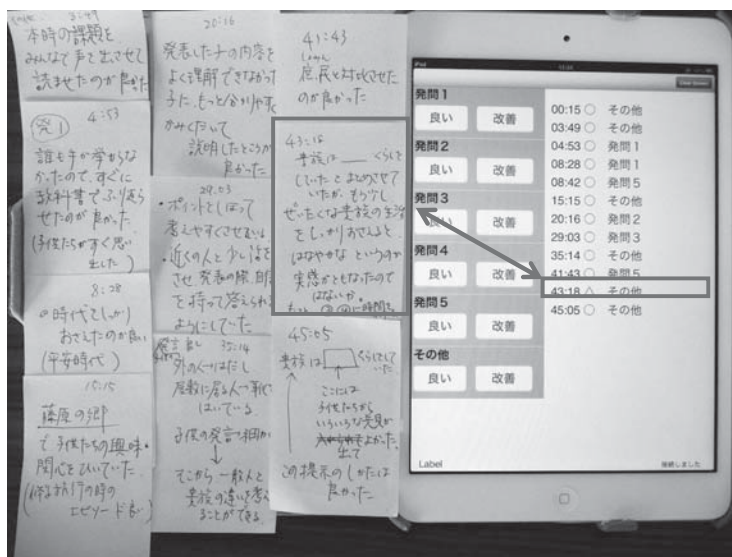 本時の課題を
みんなで声を出させて
読ませたのが良かった
発1
4:53
誰も手が挙がらな
かったので、すぐに
教科書でふり返ら
せたのが良かった
(子供たちがすぐ思い
出した)
8:28
の時代をしっかり
おさえたのが良い
(平安時代)
15:15
藤原の郷
で子供たちの興味・
関心をひいていた
エピソード良い)
20:16
発表した子の内容を
よく理解できなかった
子に、もっと分かりやすく
かみくだいて
説明したところが
良かった
29:03
・ポイントをしぼって
考えやすくさせている
・近くの人と少し話を
させ、発表の際、自信
を持って答えられる
ようにしていた
35:14
外の人ははだし
屋敷に居る人は靴を
はいている
子供の発言を細かく
そこから一般人と
貴族の違いを考え
ることができる
41:43
しょみん
庶民と対比させた
のが良かった
43:18
貴族は くらしを
していたとまとめさせて
いたが、もう少し
ぜいたくな貴族の生活
をしっかりおさえると
はなやかなというのが
実感をともなったので
はないか。
45:05
貴族は くらしをして
いた
ここには
子供たちから
いろいろな意見が
出て
よかった
この提示のしかたは
良かった
iPad
発問1
良い 改善
発問2
良い 改善
発問3
良い 改善
発問4
良い 改善
発問5
良い 改善
その他
良い 改善
00:15 ○ その他
03:49 ○ その他
04:53 ○ 発問1
08:28 ○ 発問1
08:42 ○ 発問5
15:15 ○ その他
20:16 ○ 発問2
29:03 ○ 発問3
35:14 ○ その他
41:43 ○ 発問5
43:18 △ その他
45:05 ○ その他
Label
接続しました